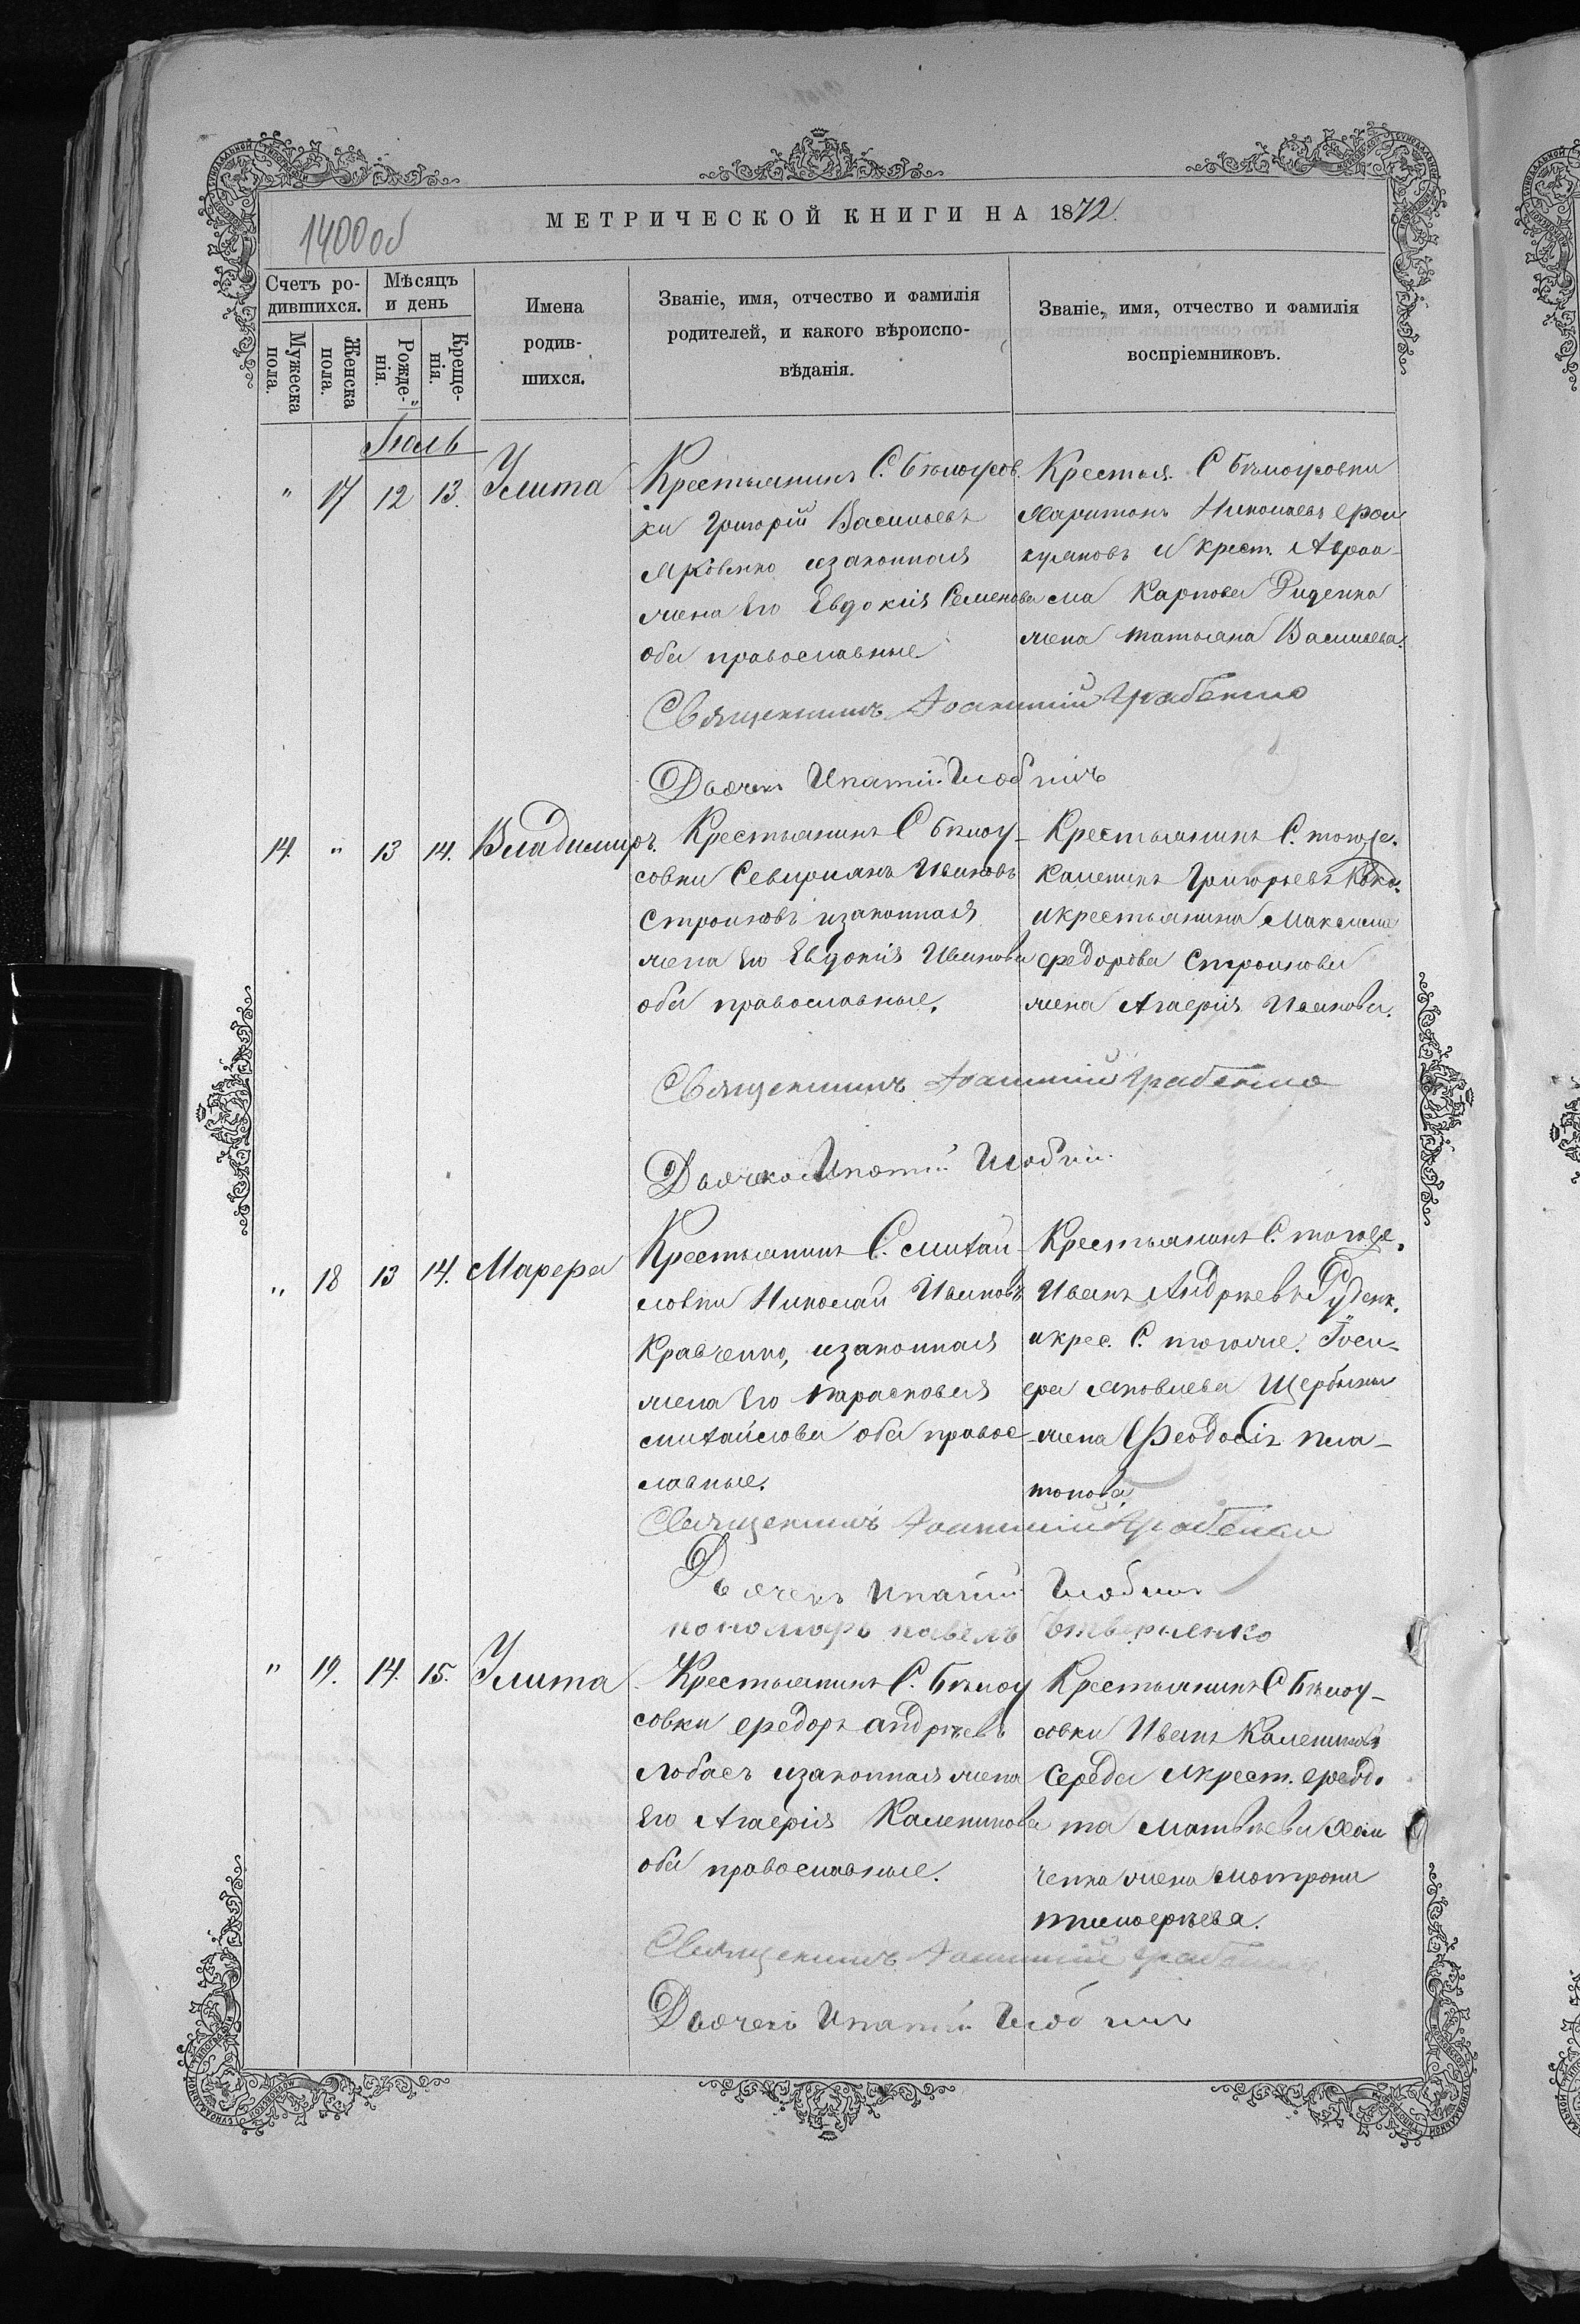 МЕТРИЧЕСКОЙ КНИГИ НА 1872.
1400 об
Счетъ ро-
дившихся.
Мѣсяцъ
и день
Мужеска
пола.
Женска
пола.
Рожде-
нія.
Креще-
нія.
Имена
родив-
шихся.
Званіе, имя, отчество и фамилія
родителей, и какого вѣроиспо-
вѣданія.
Званіе, имя, отчество и фамилія
воспріемниковъ.
Іюль
" 17 12 13. Улита
Крестьянинъ С. Бѣлоусов
ки Григорій Васильевъ
Яковенко изаконная
жена Его Евдокія Семенова
оба православные
Крестья. С Бѣлоусовки
Харитонъ Николаевъ
и Крест. Авраа-
ма Карпова Руденка
жена татьяна Васильева.
Священникъ Іоанникій Грабенко
Дьячекъ Ипатій
14. " 13 14. Владимиръ.
Крестьянинъ С Бѣлоу-
совки Северианъ Ивановъ
Строковъ изаконная
жена Его Евдокія Иванова
оба православные.
Крестьянинъ С. тогоже.
Каленикъ Григорьевъ
икрестьянина Максима
Федорова Строкова
жена Агафія Иванова.
Священникъ Іоанникій Грабенко
Дьячекъ Ипатій
" 18 13 14. Марфа
Крестьянинъ С. михай-
ловки Николай Ивановъ
Кравченко, изаконная
жена Его Парасковія
михайлова оба правос-
лавные.
Крестьянинъ С. тогоже.
Иванъ Андреевъ Руденк.
икрес. С. тогоже. Іоси-
фа яковлева Щербины
жена Феодосія пла-
тонова.
Священникъ Іоанникій Грабенко
Дьячекъ Ипатій
пономарь павелъ
" 19. 14. 15. Улита
Крестьянинъ С. Бѣлоу
совки федоръ андреевъ
Лобасъ изаконная жена
Его Агафія Каленикова
оба православные.
Крестьянинъ С Бѣлоу-
совки Иванъ Калениковъ
Середа икрест. феод.
та матвѣева
ченка жена мотрона
тимофѣева.
Священникъ Іоанникій Грабенко
Дьячекъ Ипатій